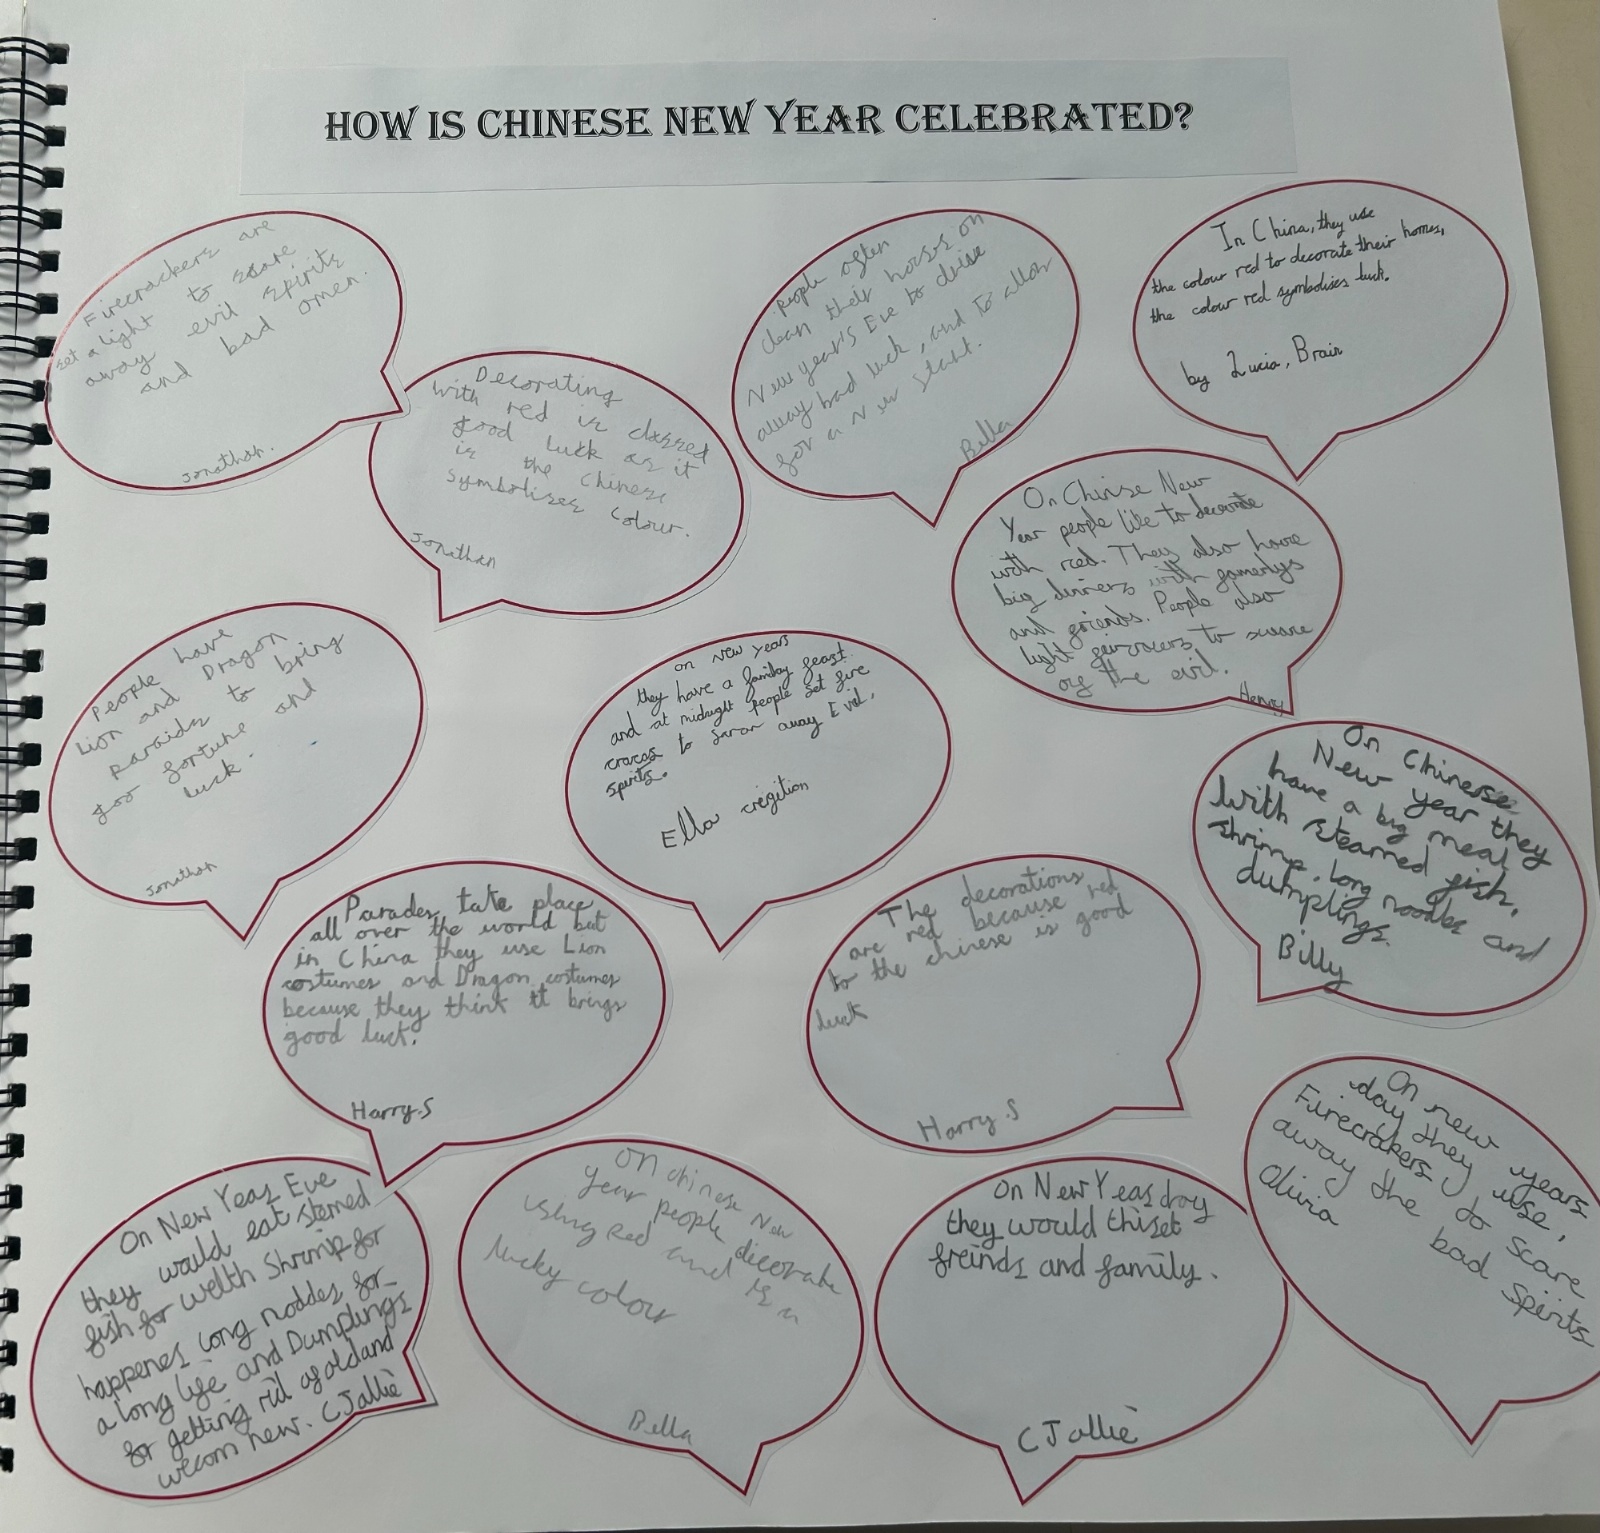 HOW IS CHINESE NEW YEAR CELEBRATED?
Firecrackers are
set a light to scare
away evil spirits
and bad omen.
Jonathan.
Decorating
with red is classed
good luck as it
is the Chinese
symbolises colour.
Jonathan
People often
clean their houses on
New year's Eve to drive
away bad luck, and to allow
for a new start.
Bella
In China, they use
the colour red to decorate their homes,
the colour red symbolises luck.
by Lucia, Brair
On Chinise New
Year people like to decorate
with red. They also have
big dinners with
and friends. People also
light to
off the evil.
Henry
People have
Lion and Dragon
paraids to bring
for fortune and
luck.
Jonathan
on New Years
they have a family feast.
and at midnight people set fire
cracas to away Evil.
spirits.
Ella
On Chinerse
New year they
have a big meal
with steamed fish,
shrimp, long noodles and
dumplings.
Billy
Parades take place
all over the world but
in China they use Lion
costumes and Dragon costumes
because they think it brings
good luck.
Harry.S
The decorations
are red because red
to the chinese is good
luck
Harry S
On new years
day they use,
Firecrakers to scare
away the bad spirits
Olivia
On New Yeas Eve
they would eat stemed
fish for welth Shrimp for
happenes long noddes for
a long life and Dumplings
for getting rid of old and
wecom new. CJallie
on chinese New
year people decorate
using Red and is a
lucky colour
Bella
on New Yeas day
they would thiset
freinds and family.
CJallie